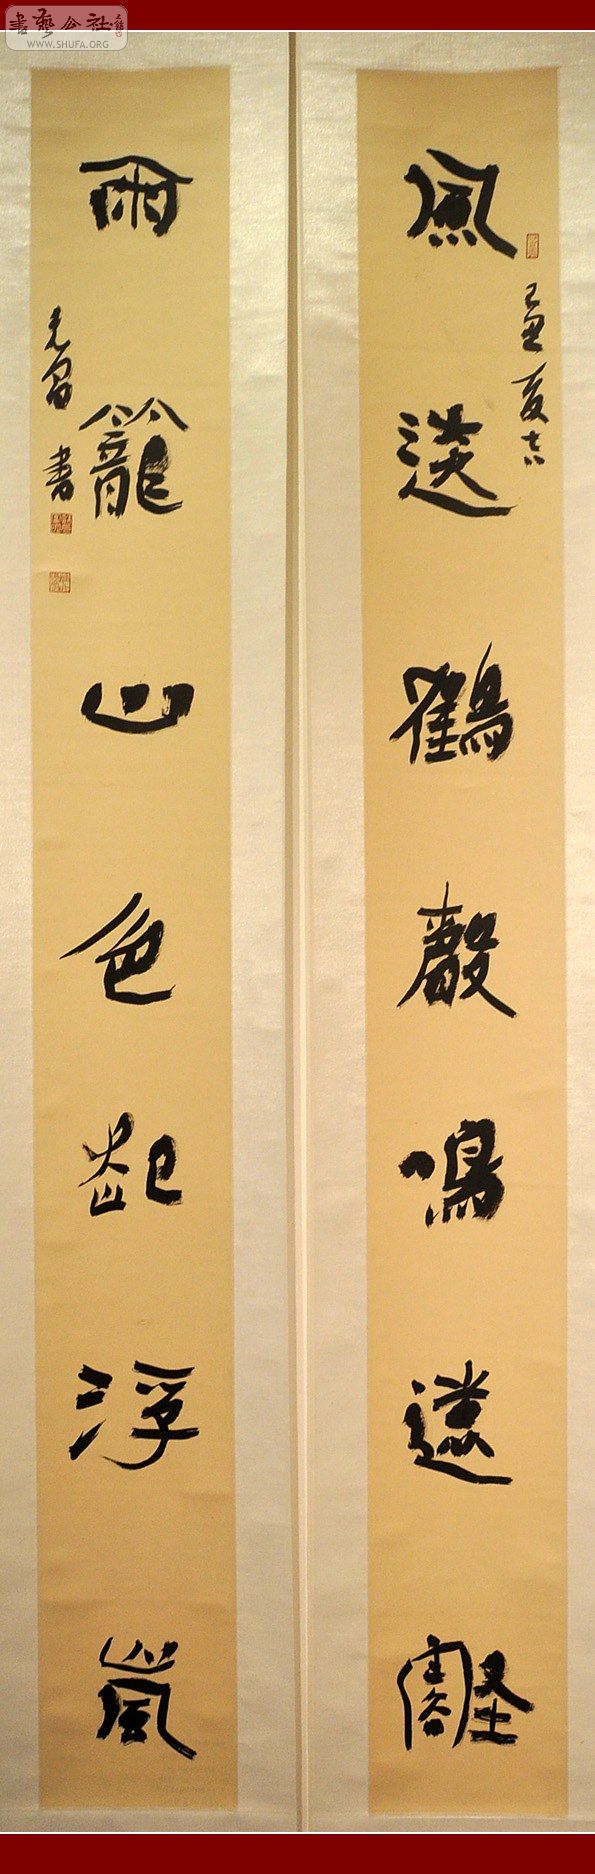 風送鶴聲鳴遠壑
己丑夏吉
雨籠山色起浮嵐
書
書藝公社
WWW.SHUFA.ORG